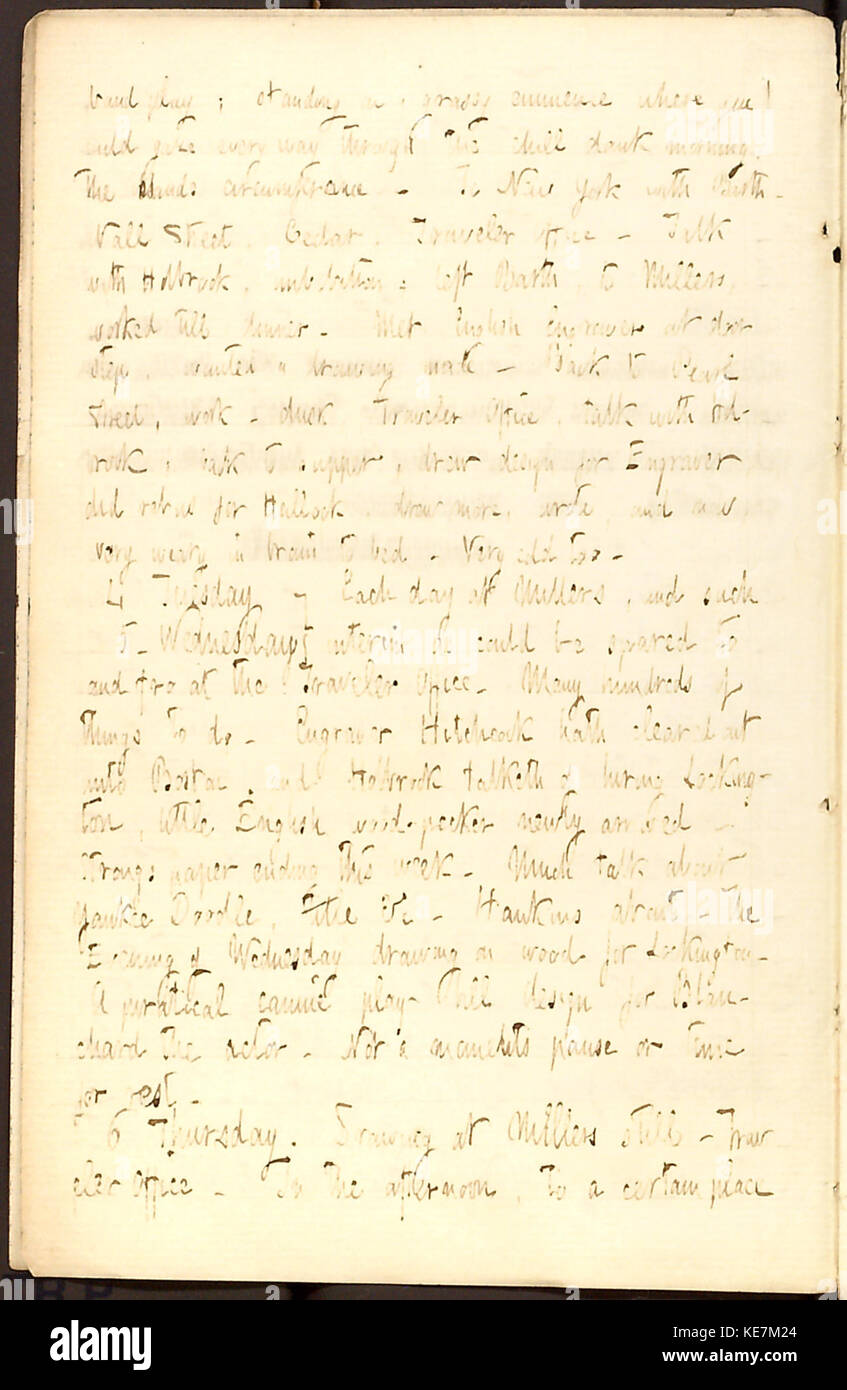 band play; standing on a grassy eminence where you
could gaze every way through the chill dank morning,
the Islands circumference - To New York with Barth -
Wall Street, Cedar, Traveler Office - Talk
with Holbrook, left Barth, to Millers,
worked till dinner - Met English Engraver at door
step, wanted a drawing made - Back to Pearl
Street, work - dusk Traveler Office, talk with Hol-
brook, back to supper, drew design for Engraver
did for Hallock, drew more, wrote, and now
very weary in brain to bed - Very cold too -
4 Tuesday - Each day at Millers, and such
5 - Wednesday interim as could be spared to
and fro at the Traveler Office - Many hundreds of
things to do - Engraver Hitchcock hath cleared out
unto Boston, and Holbrook talketh of hiring Locking-
ton, little English wood-pecker newly arrived -
Strongs paper ending this week - Much talk about
Yankee Doodle, title &c - Hawkins about - The
Evening of Wednesday drawing on wood for Lockington -
A piratical play bill design for Blan-
chard the actor - Not a moments pause or time
for rest -
6 Thursday. Drawing at Millers still - Trav
eler Office - In the afternoon, to a certain place
alamy
alamy
Image ID: KE7M24
www.alamy.com